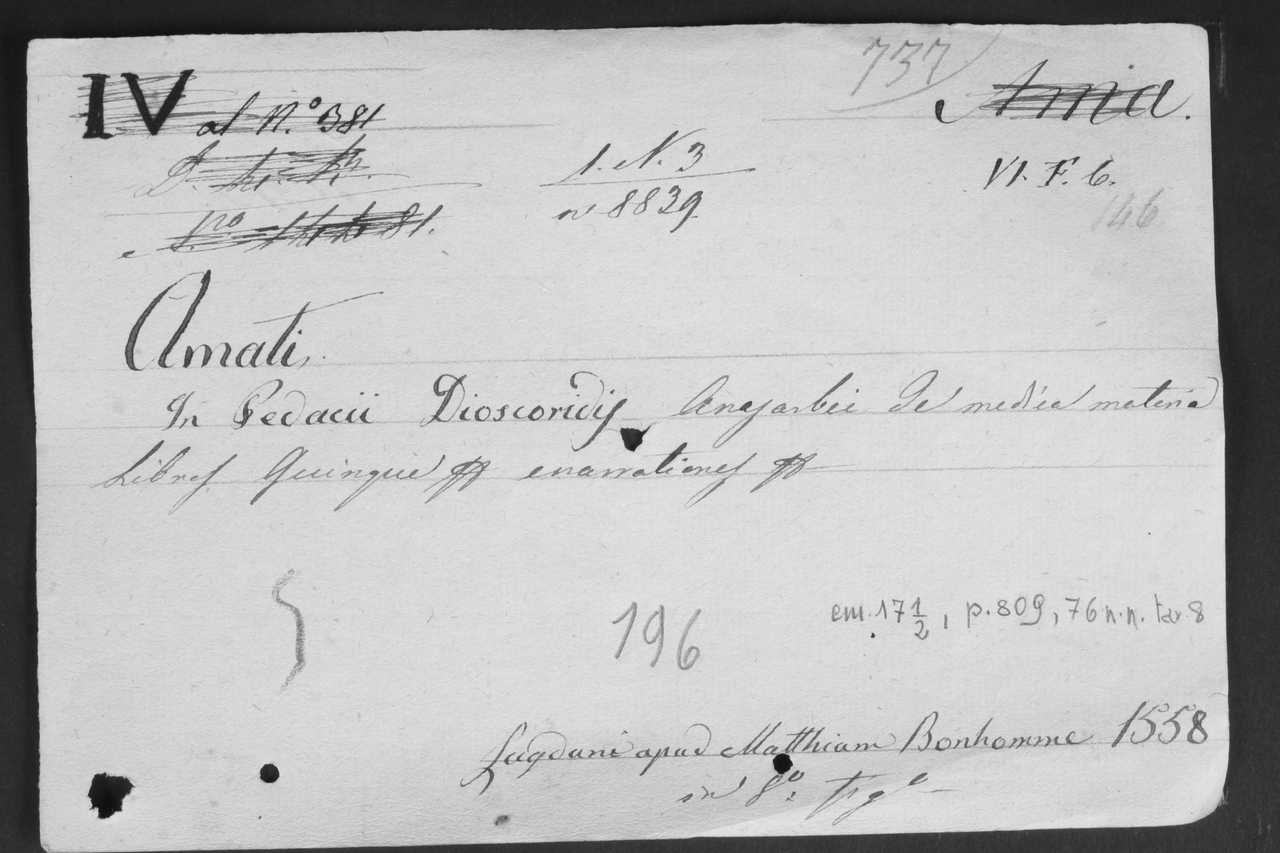 737
IV al N.º 381
Ama.
1. N. 3
n 8839
VI. F. 6.
146
Amati
In Pedacii Dioscoridis Anazarbei de medica materia
Libros Quinque enarrationes
196
cm. 17 1/2, p. 809, 76 n.n. tav 8
Lugduni apud Matthiam Bonhomme 1558
in 8º. Figº